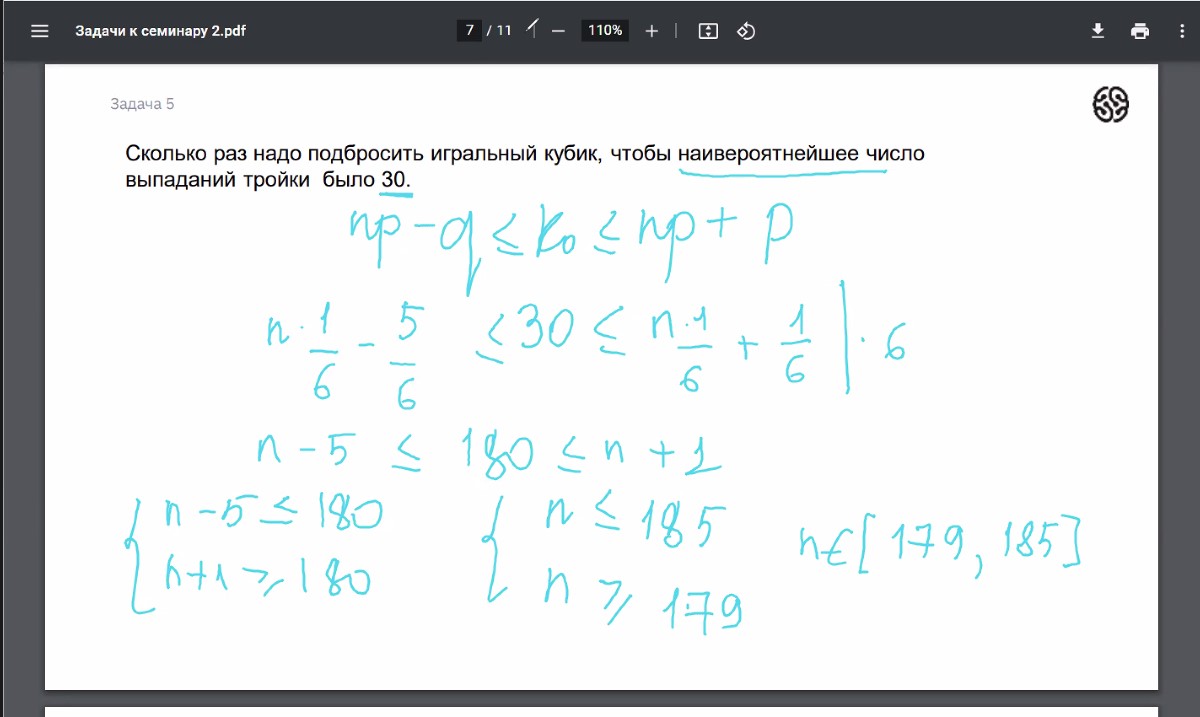 Задачи к семинару 2.pdf
7 / 11
110%
Задача 5
Сколько раз надо подбросить игральный кубик, чтобы наивероятнейшее число
выпаданий тройки было 30.
np - q ≤ k₀ ≤ np + p
n · 1/6 - 5/6 ≤ 30 ≤ n · 1/6 + 1/6 | · 6
n - 5 ≤ 180 ≤ n + 1
{ n - 5 ≤ 180 { n ≤ 185 n ∈ [179, 185]
n + 1 ≥ 180 n ≥ 179